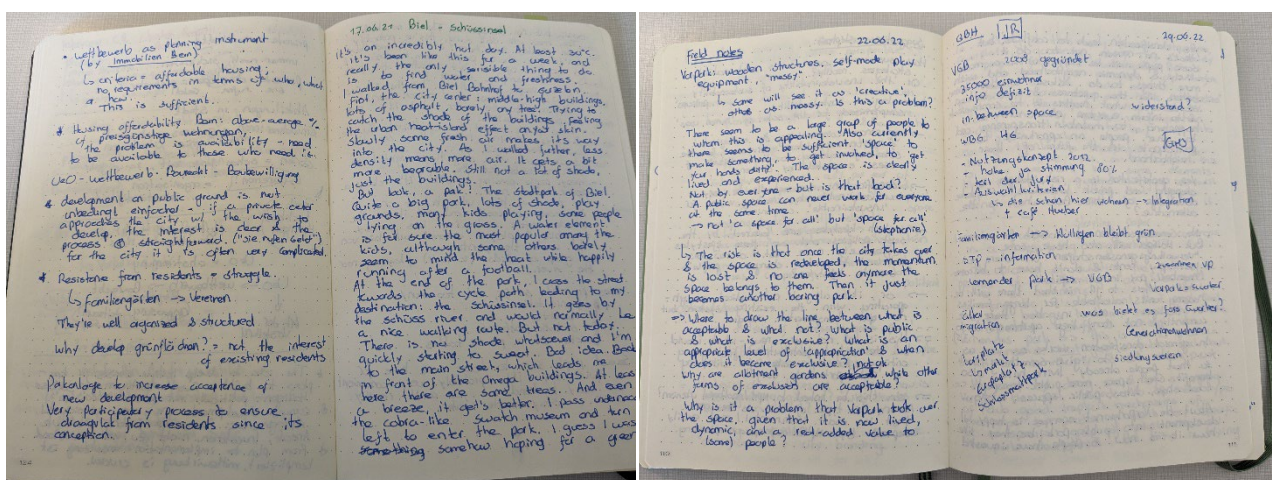 • wettbewerb as planning instrument
(by Immobilien Bern)
↳ criteria = affordable housing;
no requirements in terms of who, what
& how
This is sufficient.
* Housing affordability Bern: above-average %
of preisgünstige wohnungen,
the problem is availability - need
to be available to those who need it.
UeO - wettbewerb - Baurecht - Baubewilligung
* development on public ground is not
unbedingt einfacher - if a private actor
approaches the city w/ the wish to
develop, the interest is clear & the
process straightforward. ("sie rufen Geld")
for the city it is often very complicated.
* Resistance from residents = struggle.
↳ Familiengärten → Vereinen
They're well organized & structured
why develop grünflächen? = not the interest
of existing residents
Parkanlage to increase acceptance of
new development
Very participatory process to ensure
from residents since its
conception.
17.06.21 Biel - Schüssinsel
it's an incredibly hot day. At least 34°C.
It's been like this for a week, and
really, the only sensible thing to do
is to find water and freshness.
I walked from Biel Bahnhof to
First, the city center: middle-high buildings,
lots of asphalt, barely any tree. Trying to
catch the shade of the buildings, feeling
the urban heat-island effect on my skin.
Slowly some fresh air makes its way
into the city. As I walked further, less
density means more air. It gets a bit
more bearable. Still not a lot of shade,
just the buildings.
But look, a park! The Stadtpark of Biel.
Quite a big park, lots of shade, play
grounds, many kids playing, some people
lying on the grass. A water element
is for sure the most popular among the
kids, although some others barely
seem to mind the heat while happily
running after a football.
At the end of the park, I cross the street
towards the cycle path leading to my
destination: the schüssinsel. It goes by
the schüss river and would normally be
a nice walking route. But not today.
There is no shade whatsoever and I'm
quickly starting to sweat. Bad idea. Back
to the main street, which leads me
in front of the Omega buildings. At least
here there are some trees. And even
a breeze, it get's better. I pass underneath
the cobra-like Swatch museum and turn
left to enter the park. I guess I was
somehow hoping for a green
Field notes 22.06.22
Varpark: wooden structures, self-made play
equipment, "messy"
↳ some will see it as 'creative',
others as messy. Is this a problem?
There seem to be a large group of people to
whom this is appealing. Also currently
there seems to be sufficient 'space' to
make something, to get involved, to get
your hands dirty. The space is clearly
lived and experienced.
Not by everyone - but is that bad?
A public space can never work for everyone
at the same time
→ not 'a space for all' but 'space for all'
(Stephanie)
↳ The risk is that once the city takes over
& the space is redeveloped, the momentum
is lost & no one feels anymore the
space belongs to them. Then it just
becomes another boring park.
⇒ Where to draw the line between what is
acceptable & what not? What is public
& what is exclusive? What is an
appropriate level of 'appropriation' & when
does it become exclusive?
Why are allotment gardens not ok while other
forms of exclusion are acceptable?
Why is it a problem that Varpark took over
the space, given that it is now lived,
dynamic, and a real-added value to
(some) people?
GBH JR 29.06.22
VGB 2008 gegründet
35000 einwohner
info deficit
in-between space widerstand?
WBG HG
GeO
- Nutzungskonzept 2012
- hohe ja stimmung 80%
- teil der Jury
- Auswahlkriterien
↳ die schon hier wohnen → Integration
+ café Hueber
Familiengärten → bleibt grün
STP - information
→ VGB
Varpark
migration was
Generationenwohnen
↳ markt siedlungsverein
Europaplatz
Schlossmattpark